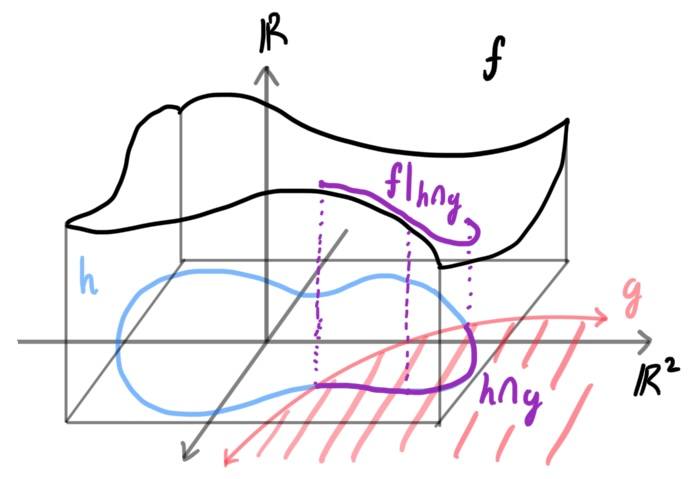 ℝ
f
f|h∩g
h
g
ℝ²
h∩g